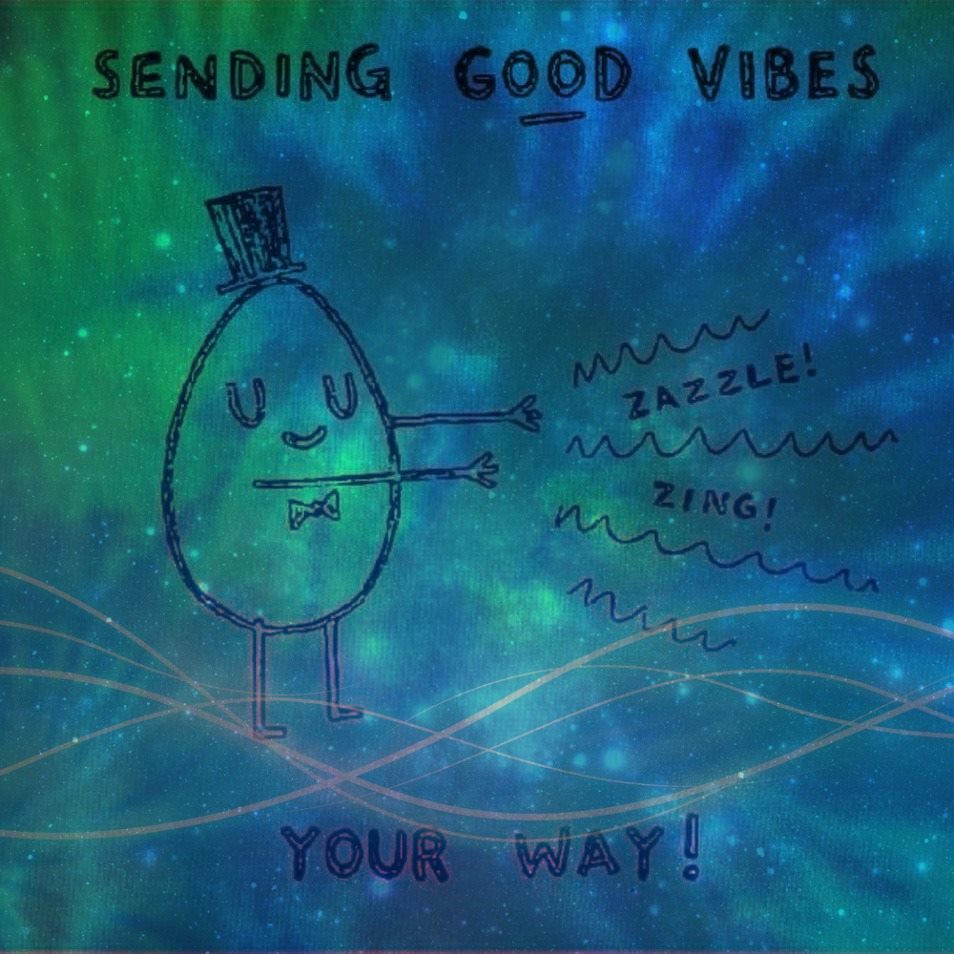 SENDING GOOD VIBES
ZAZZLE!
ZING!
YOUR WAY!